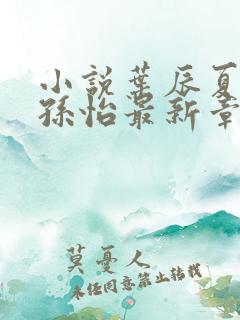 小說葉辰夏
孫怡最新章
莫憂人
未经同意禁止转载